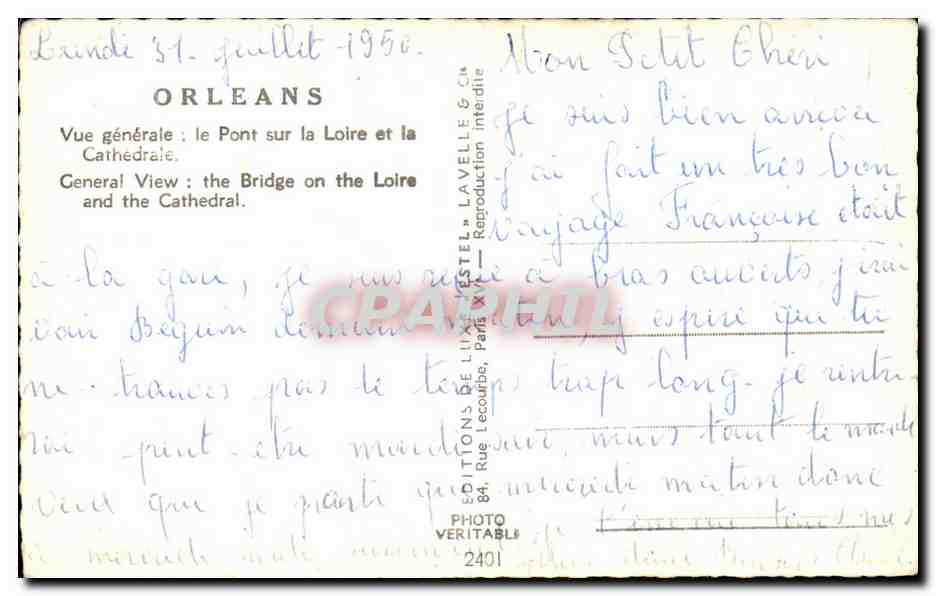 Lundi 31 juillet 1950.
ORLEANS
Vue générale : le Pont sur la Loire et la
Cathédrale.
General View : the Bridge on the Loire
and the Cathedral.
EDITIONS DE LUXE «ESTEL» LAVELLE & Cie
84, Rue Lecourbe, Paris XVe — Reproduction interdite
PHOTO
VERITABLE
2401
Mon Petit Chéri,
je suis bien arrivée
j'ai fait un très bon
voyage Françoise était
à la gare, je suis reçue à bras ouverts, j'irai
voir Beguin demain matin, j'espère que tu
ne trouves pas le temps trop long. je rentre-
rai peut-etre mardi soir, mais tout le monde
veux que je parte que mercredi matin donc
à mercredi
CPARHIL